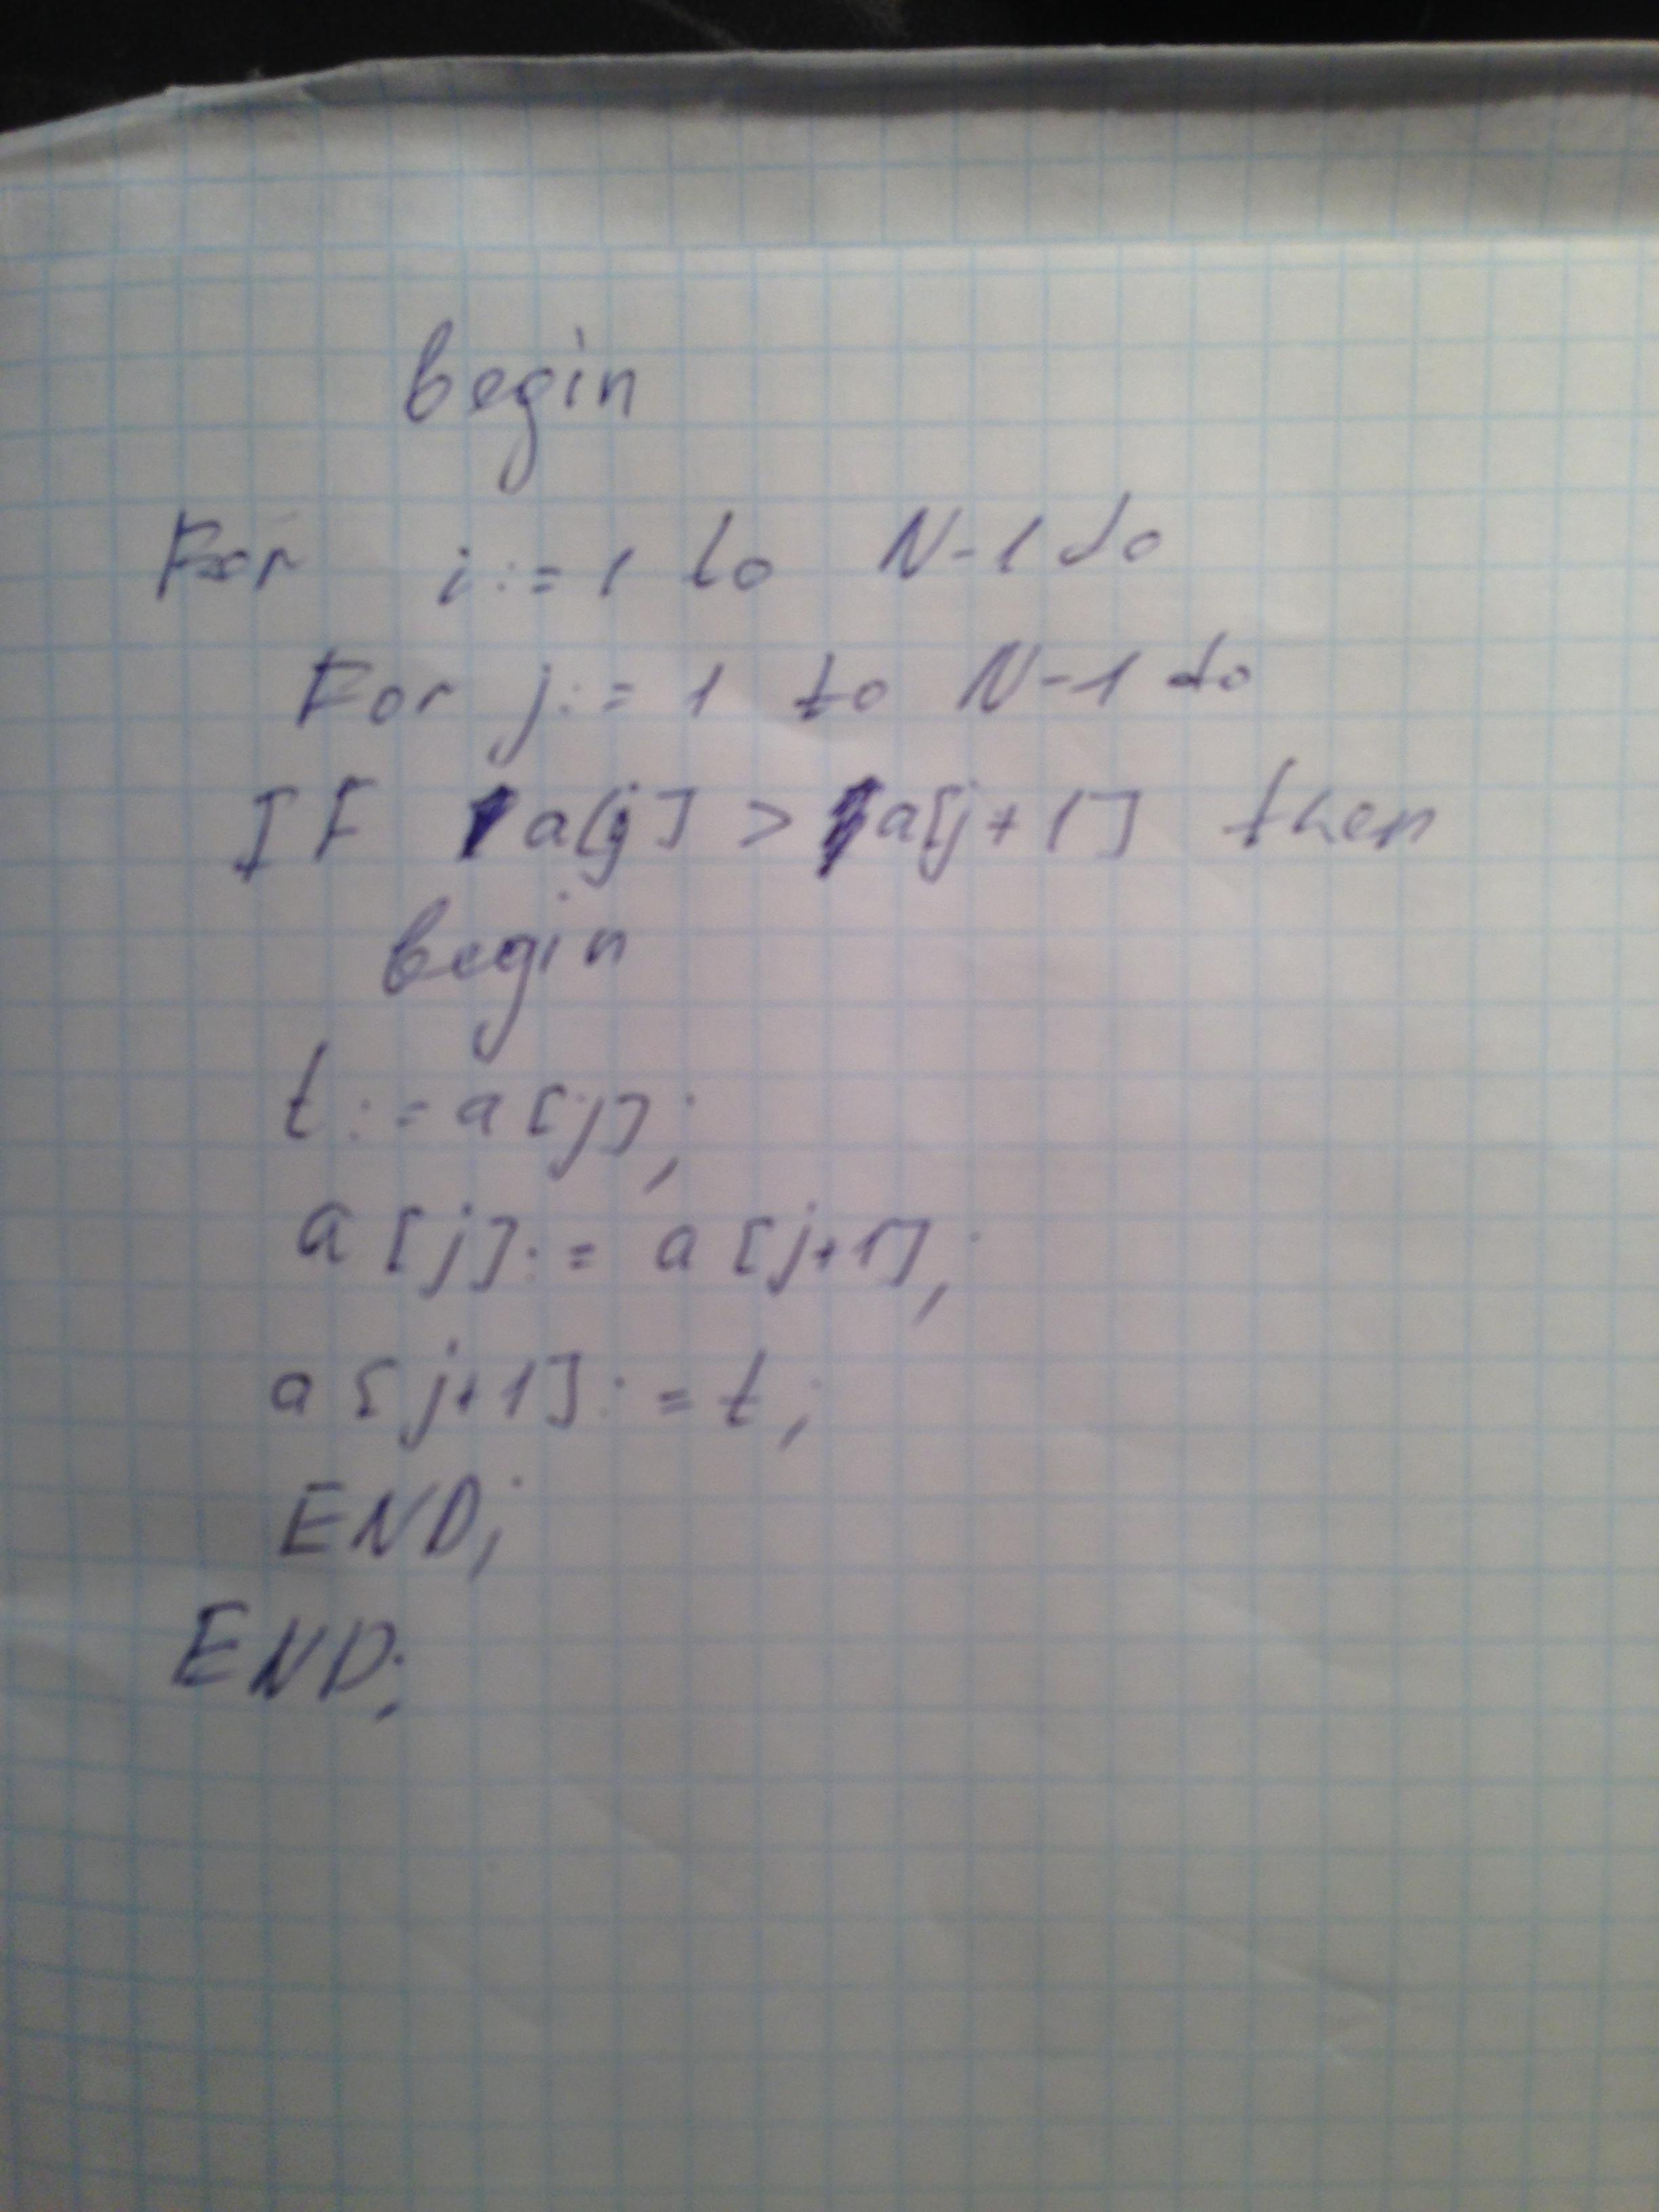 begin
For i:=1 to N-1 do
For j:=1 to N-1 do
IF a[j] > a[j+1] then
begin
t:=a[j];
a[j]:=a[j+1];
a[j+1]:=t;
END;
END;